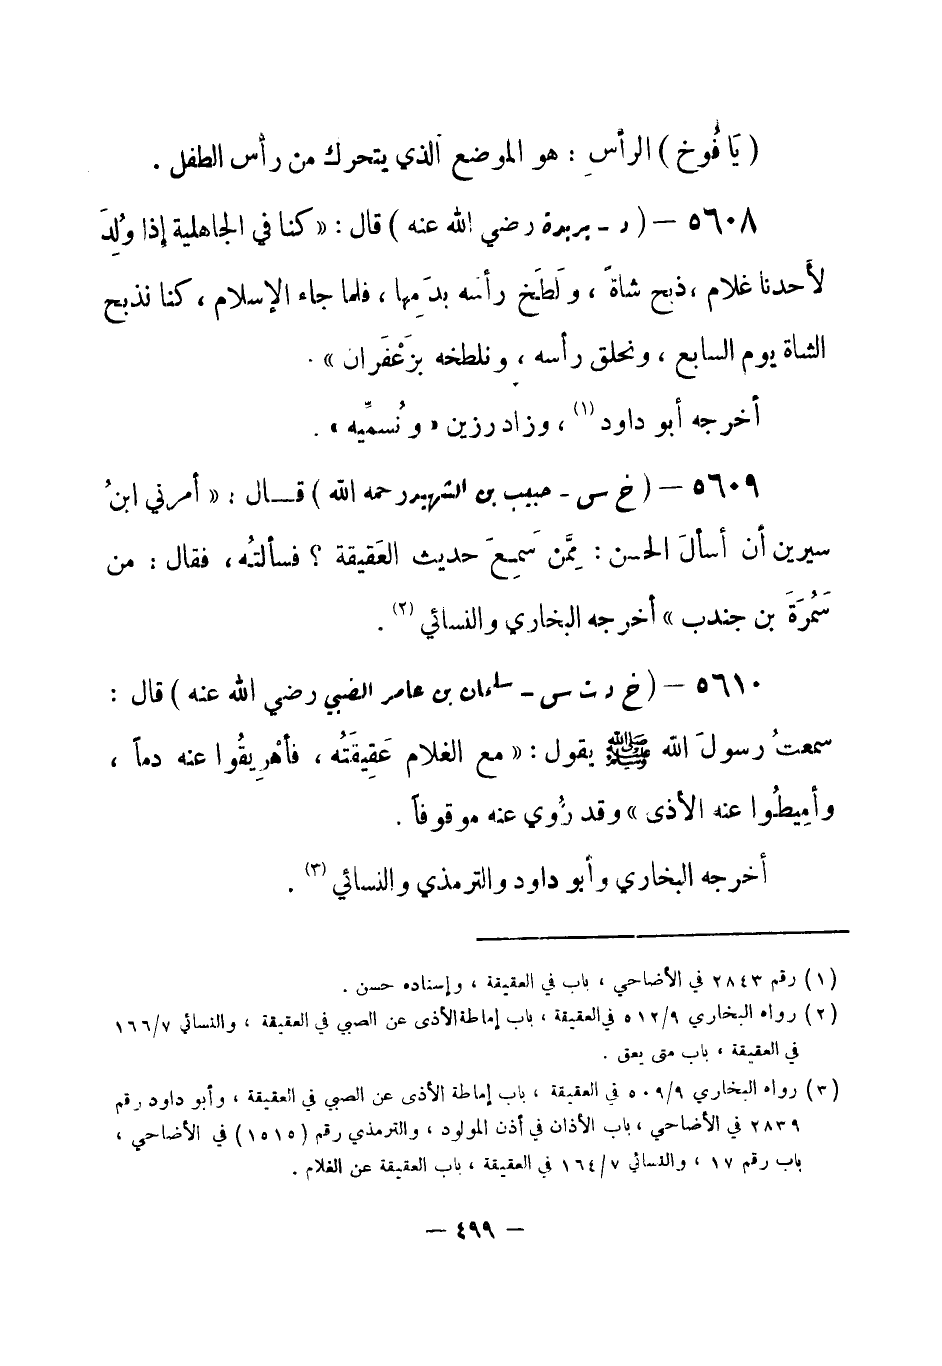 ( يَا فُوخ ) الرأسِ : هو الموضع الذي يتحرك من رأس الطفل .
٥٦٠٨ — ( د - بريدة رضي الله عنه ) قال : « كنا في الجاهلية إذا وُلِدَ
لأَحدنا غلام ، ذبح شاةً ، ولَطَخ رأسه بدَمِها ، فلما جاء الإسلام ، كنا نذبح
الشاة يوم السابع ، ونحلق رأسه ، ونلطخه بزَعْفَران » .
أخرجه أبو داود (١) ، وزاد رزين « ونُسمِّيه » .
٥٦٠٩ — ( خ س - حبيب بن الشهيد رحمه الله ) قــال : « أمرني ابنُ
سيرين أن أسألَ الحسن : مِمَّن سَمِعَ حديث العَقيقة ؟ فسألتُه ، فقال : من
سَمُرَةَ بن جندب » أخرجه البخاري والنسائي (٢) .
٥٦١٠ — ( خ د ت س - سلمان بن عامر الضبي رضي الله عنه ) قال :
سمعتُ رسولَ الله ﷺ يقول : « مع الغلام عَقِيقَتُه ، فأهْرِيقُوا عنه دماً ،
وأمِيطُوا عنه الأذى » وقد رُوي عنه موقوفاً .
أخرجه البخاري وأبو داود والترمذي والنسائي (٣) .
(١) رقم ٢٨٤٣ في الأضاحي ، باب في العقيقة ، وإسناده حسن .
(٢) رواه البخاري ٥١٢/٩ في العقيقة ، باب إماطة الأذى عن الصبي في العقيقة ، والنسائي ١٦٦/٧
في العقيقة ، باب متى يعق .
(٣) رواه البخاري ٥٠٩/٩ في العقيقة ، باب إماطة الأذى عن الصبي في العقيقة ، وأبو داود رقم
٢٨٣٩ في الأضاحي ، باب الأذان في أذن المولود ، والترمذي رقم (١٥١٥) في الأضاحي ،
باب رقم ١٧ ، والنسائي ١٦٤/٧ في العقيقة ، باب العقيقة عن الغلام .
— ٤٩٩ —